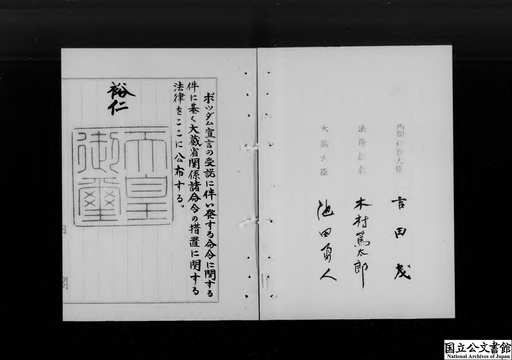 ポツダム宣言の受諾に伴い発する命令に関する
件に基く大蔵省関係諸命令の措置に関する
法律をここに公布する。
裕仁
天皇
御璽
内閣総理大臣
吉田茂
法務総裁
木村篤太郎
大蔵大臣
池田勇人
国立公文書館
National Archives of Japan